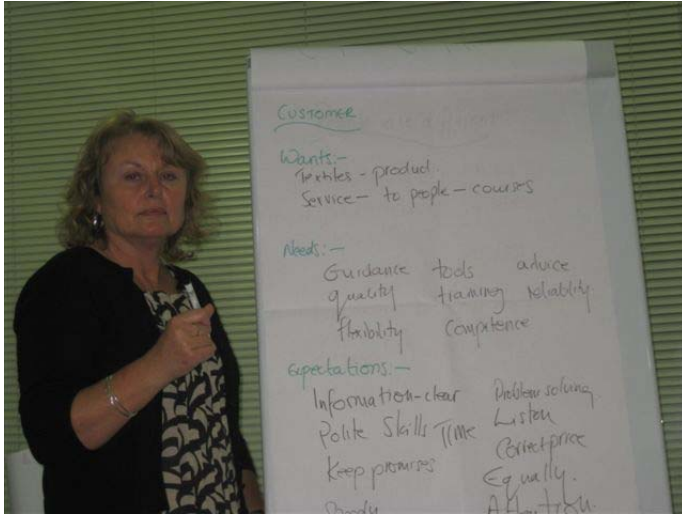 CUSTOMER
Wants:-
Textiles - product.
Service - to people - courses
Needs:-
Guidance tools advice
quality training reliability
flexibility Competence
Expectations:-
Information-clear Problem solving.
Polite Skills Time Listen
Correct price
Keep promises
Equally.